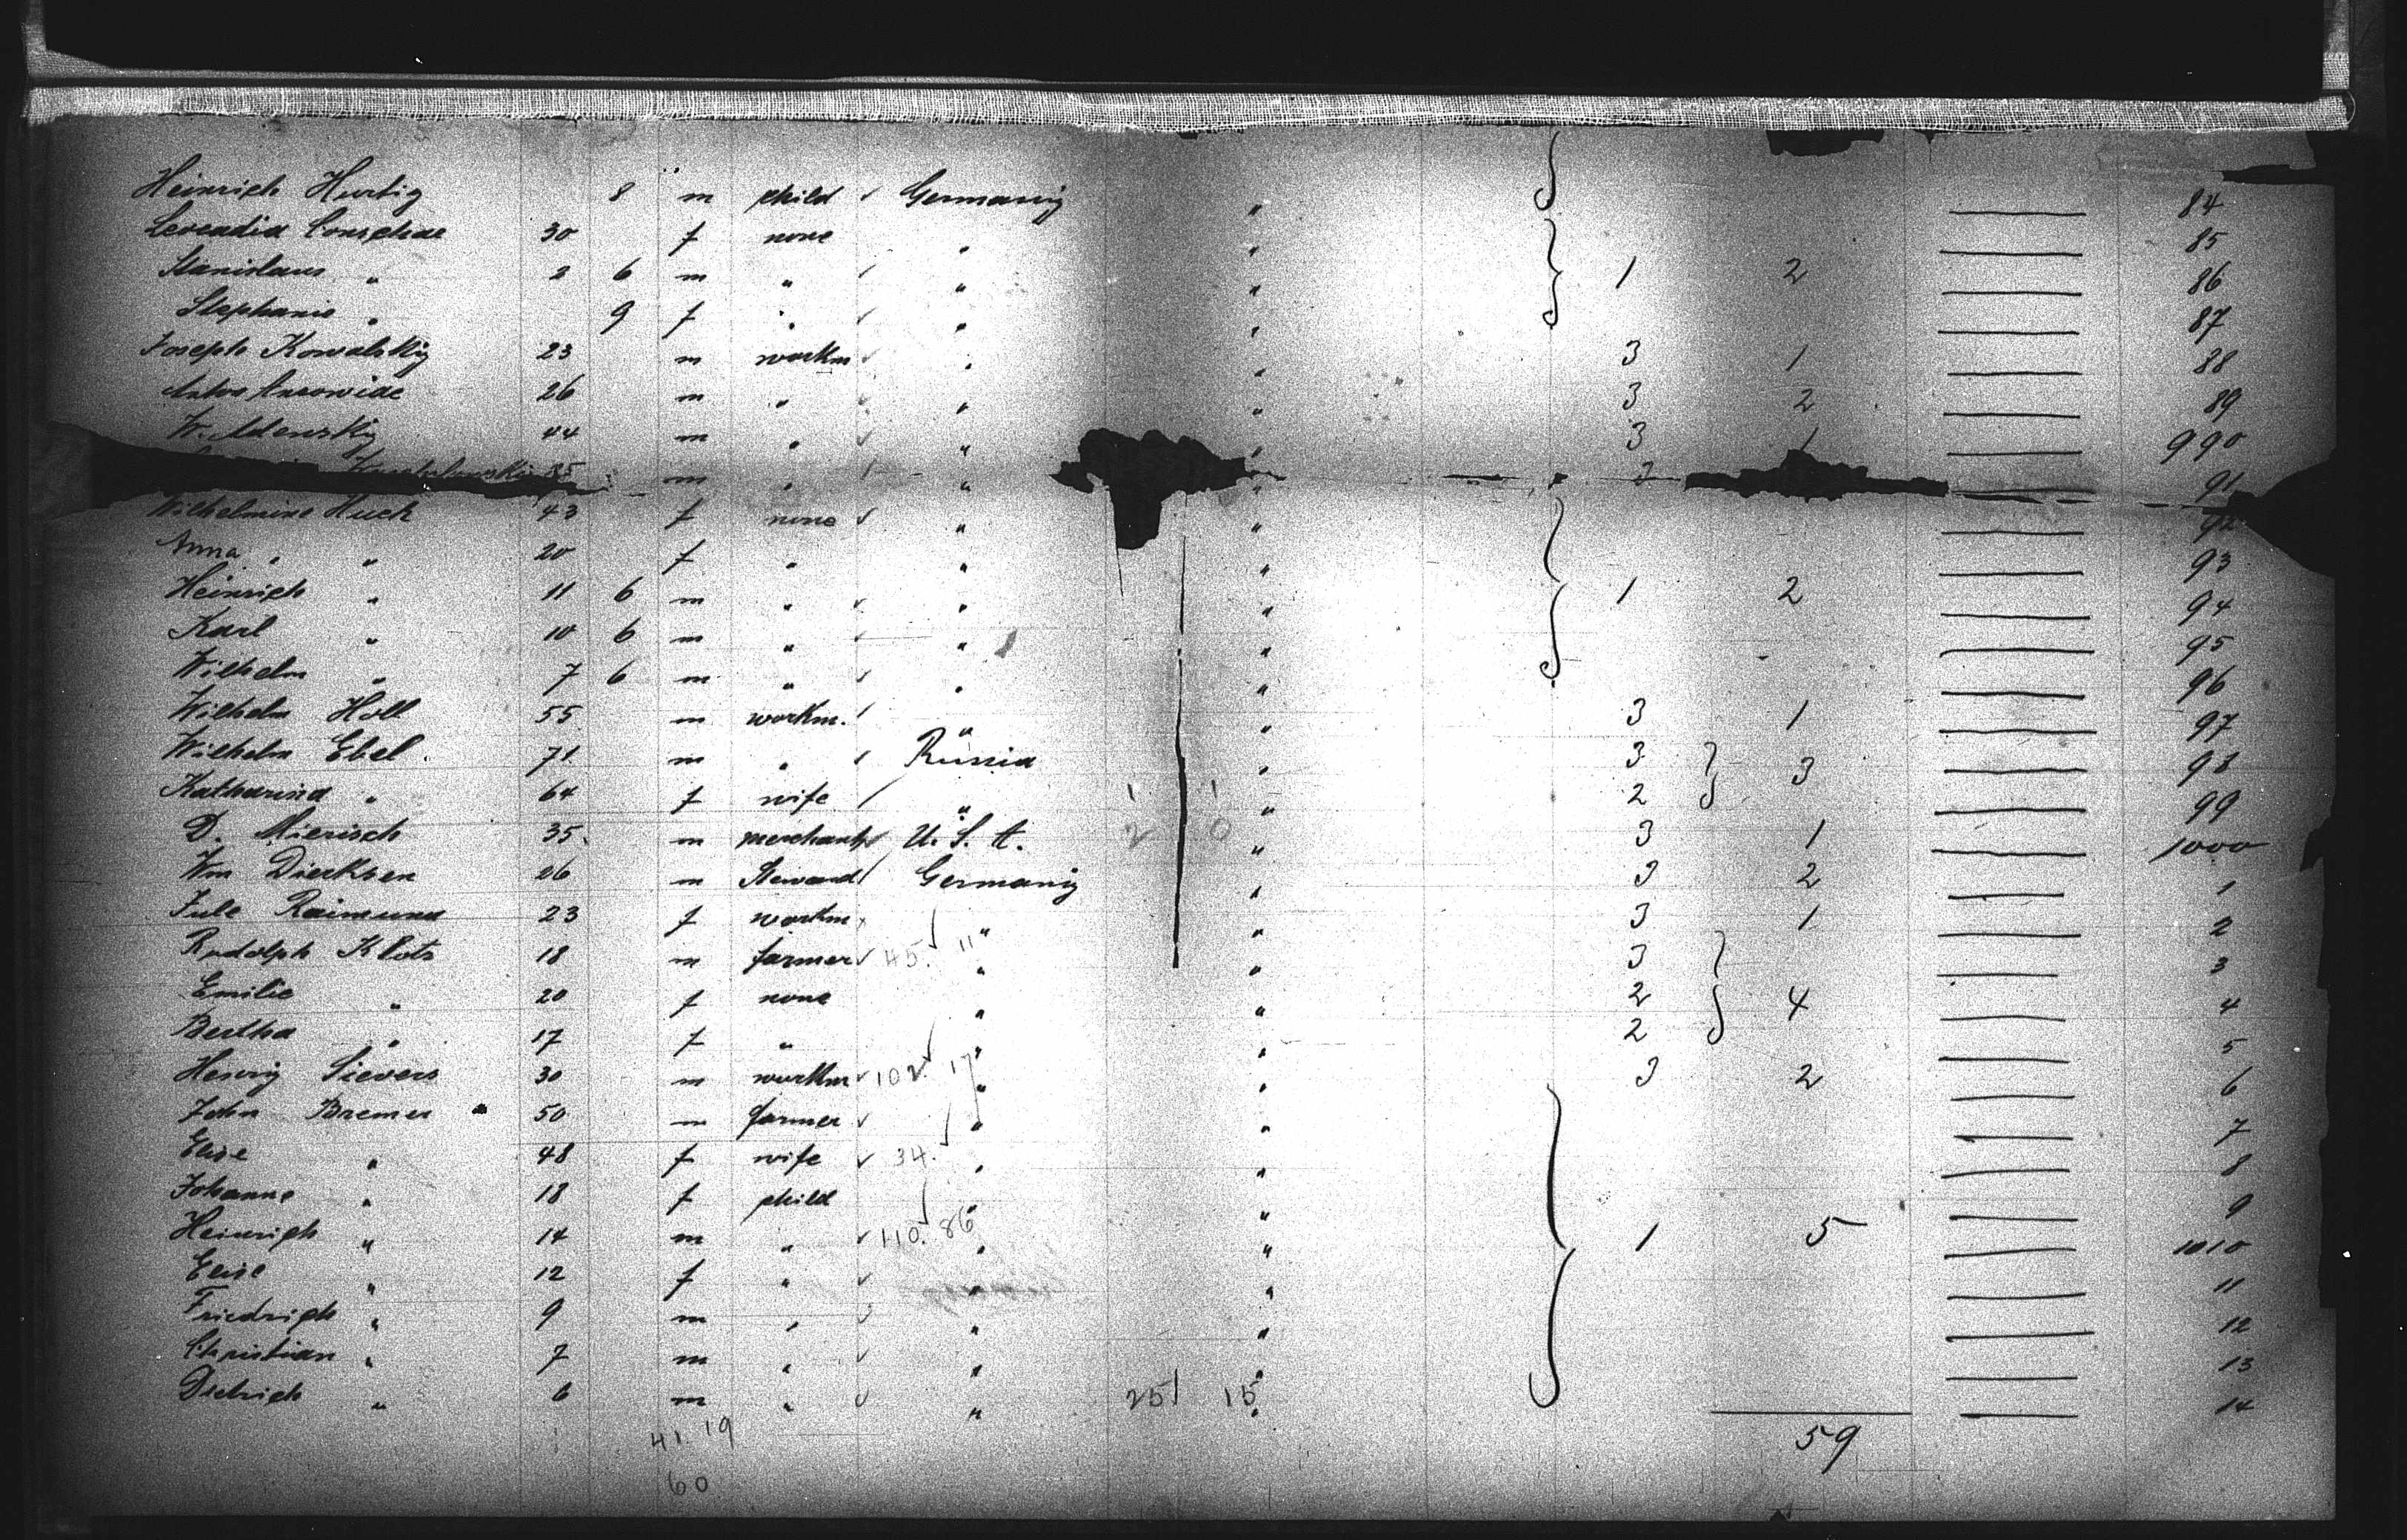 Heinrich Hurtig 8 m child ✓ Germany " 84
Leocadia 30 f none " " 85
Stanislaus " 2 6 m " ✓ " " 1 2 86
Stephanie " 9 f " ✓ " " 87
Joseph Kowalsky 23 m workm ✓ " " 3 1 88
26 m " ✓ " " 3 2 89
W. 44 m " ✓ " " 3 1 990
35 m " ✓ " " 91
Wilhelmine Huck 43 f none ✓ " " 92
Anna " " 20 f " " " 93
Heinrich " 11 6 m " ✓ " " 1 2 94
Karl " 10 6 m " ✓ " " 95
Wilhelm " 7 6 m " ✓ " " 96
Wilhelm Holl 55 m workm. ✓ " " 3 1 97
Wilhelm Ebel 71 m " ✓ Russia " 3 3 98
Katharina " 64 f wife ✓ " 1 1 " 2 99
D. Mierisch 35 m merchant ✓ U. S. A. 2 0 " 3 1 1000
Wm Dierksen 26 m Steward ✓ Germany " 3 2 1
Jule Raimund 23 f workm ✓ " " 3 1 2
Rudolph Klots 18 m farmer ✓ 45. 11 " " 3 3
Emilie " 20 f none " " 2 4 4
Bertha " 17 f " " " 2 5
Henry Sievers 30 m workm ✓ 102. 17 " " 3 2 6
John Bremer " 50 m farmer ✓ " " 7
Elise " 48 f wife ✓ 34. " " 8
Johanne " 18 f child " " 9
Heinrich " 14 m " ✓ 110. 86 " " 1 5 1010
Elise " 12 f " ✓ " " 11
Friedrich " 9 m " ✓ " " 12
Christian " 7 m " ✓ " " 13
Dietrich " 6 m " ✓ " 25 15 " 14
41. 19 59
60